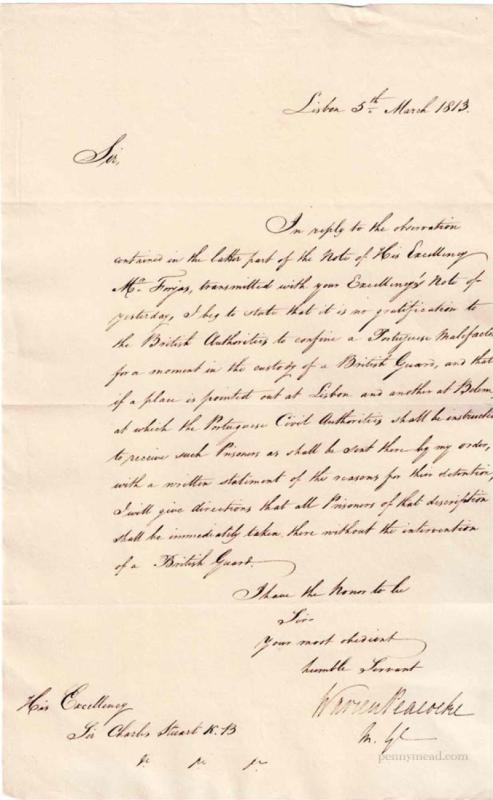 Lisbon 5th March 1813.
Sir,
In reply to the observation
contained in the latter part of the Note of His Excellency
Mr. Forjas, transmitted with your Excellency's Note of
yesterday, I beg to state that it is no gratification to
the British Authorities to confine a Portuguese Malefacto
for a moment in the custody of a British Guard, and that
if a place is pointed out at Lisbon and another at Belem,
at which the Portuguese Civil Authorities shall be instructe
to receive such Prisoners as shall be sent there by my order,
with a written statement of the reasons for their detention,
I will give directions that all Prisoners of that description
shall be immediately taken there without the intervention
of a British Guard.
I have the honor to be
Sir
Your most obedient
humble Servant
Warren Peacocke
M. Gl
His Excellency
Sir Charles Stuart K.B
pennymead.com